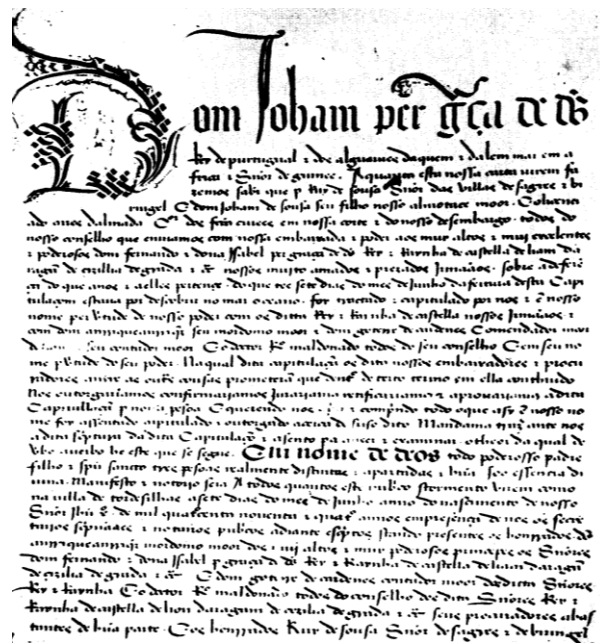 Dom Joham per graça de ds
Rey de purtugual e dos alguarves daquem e dalem mar em a
frica e Snõr de guinee. A quantos esta nossa carta virem fa
zemos saber que per Ruy de sousa Snõr das villas de sagres e bi
ringel E dom Johan de sousa seu filho nosso almotace moor. E o licenci
ado aires dalmada Cor dos fectos civees em nossa corte e do nosso desembargo. todos do
nosso conselho que enviamos com nossa embaixada e poder aos muy altos e muy excelentes
e poderosos dom fernando e dona Isabel per graça de ds Rey e Raynha de castella de liam dara
gam de cizilia de grada e nossos muito amados e prezados Irmãaos. sobre a deferen
ça do que a nos e a elles pertence do que tee sete dias do mes de Junho da fectura desta Capi
tulaçam estava por descobrir no mar oceano. foy trautado e capitulado por nos e em nosso
nome per vertude de nosso poder com os dittos Rey e Raynha de castella nossos Irmãaos e
com dom anrrique anrriquez seu mordomo moor e dom goterre de cardenes Comendador moor
seu contador moor E o doctor R. maldonado todos do seu conselho E em seu no
me per vertude do seu poder. Na qual ditta capitulaçam os dittos nossos embaixadores e procu
radores antre as outras cousas prometeram que dentro de certo termo em ella contheudo
Nos outorgariamos confirmariamos Jurariamos retificariamos e aprovariamos a ditta
Capitullaçam per nossa pesoa E querendo nos comprindo todo o que asy em nosso no
me foy assentado capitulado e outorgado acerca do suso dito. Mandamos trazer ante nos
a ditta scriptura da ditta Capitulaçam e asento pera a veer e examinar. o theor da qual de
verbo a verbo he este que se segue. Em nome de deos todo poderoso padre
filho e spiritu sancto tres pesoas realmente distintas e apartadas e hũa soo essencia di
vina. Manifesto e notorio seia A todos quantos este publico stormento virem como
na villa de tordesilhas a sete dias do mes de Junho anno do nascimento de nosso
Snõr Jhu xpo de mil quatrocentos noventa e quatro annos em presença de nos os secre
tarios scripvaaes e notarios publicos adiante escriptos stando presentes os honrrados dom
anrrique anrriquez mordomo moor dos muy altos e muy poderosos principes os Snõres
dom fernando e dona Isabel per graça de ds Rey e Raynha de castella de liam daragam
de cizilia de grada e E dom goterre de cardenes contador moor dos dittos Snõres
Rey e Raynha E o doctor R. maldonado todos do conselho dos dittos Snõres Rey e
Raynha de castella de liom daragam de cezilia de grada e seus procuradores abas
tantes de hũa parte. E os honrrados Ruy de sousa Snõr de sagres e